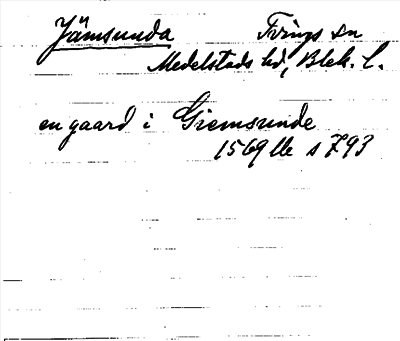 Jämsunda Tvings sn
Medelstads hd, Blek. l.
en gaard i Giemsunde
1569 lle s 793